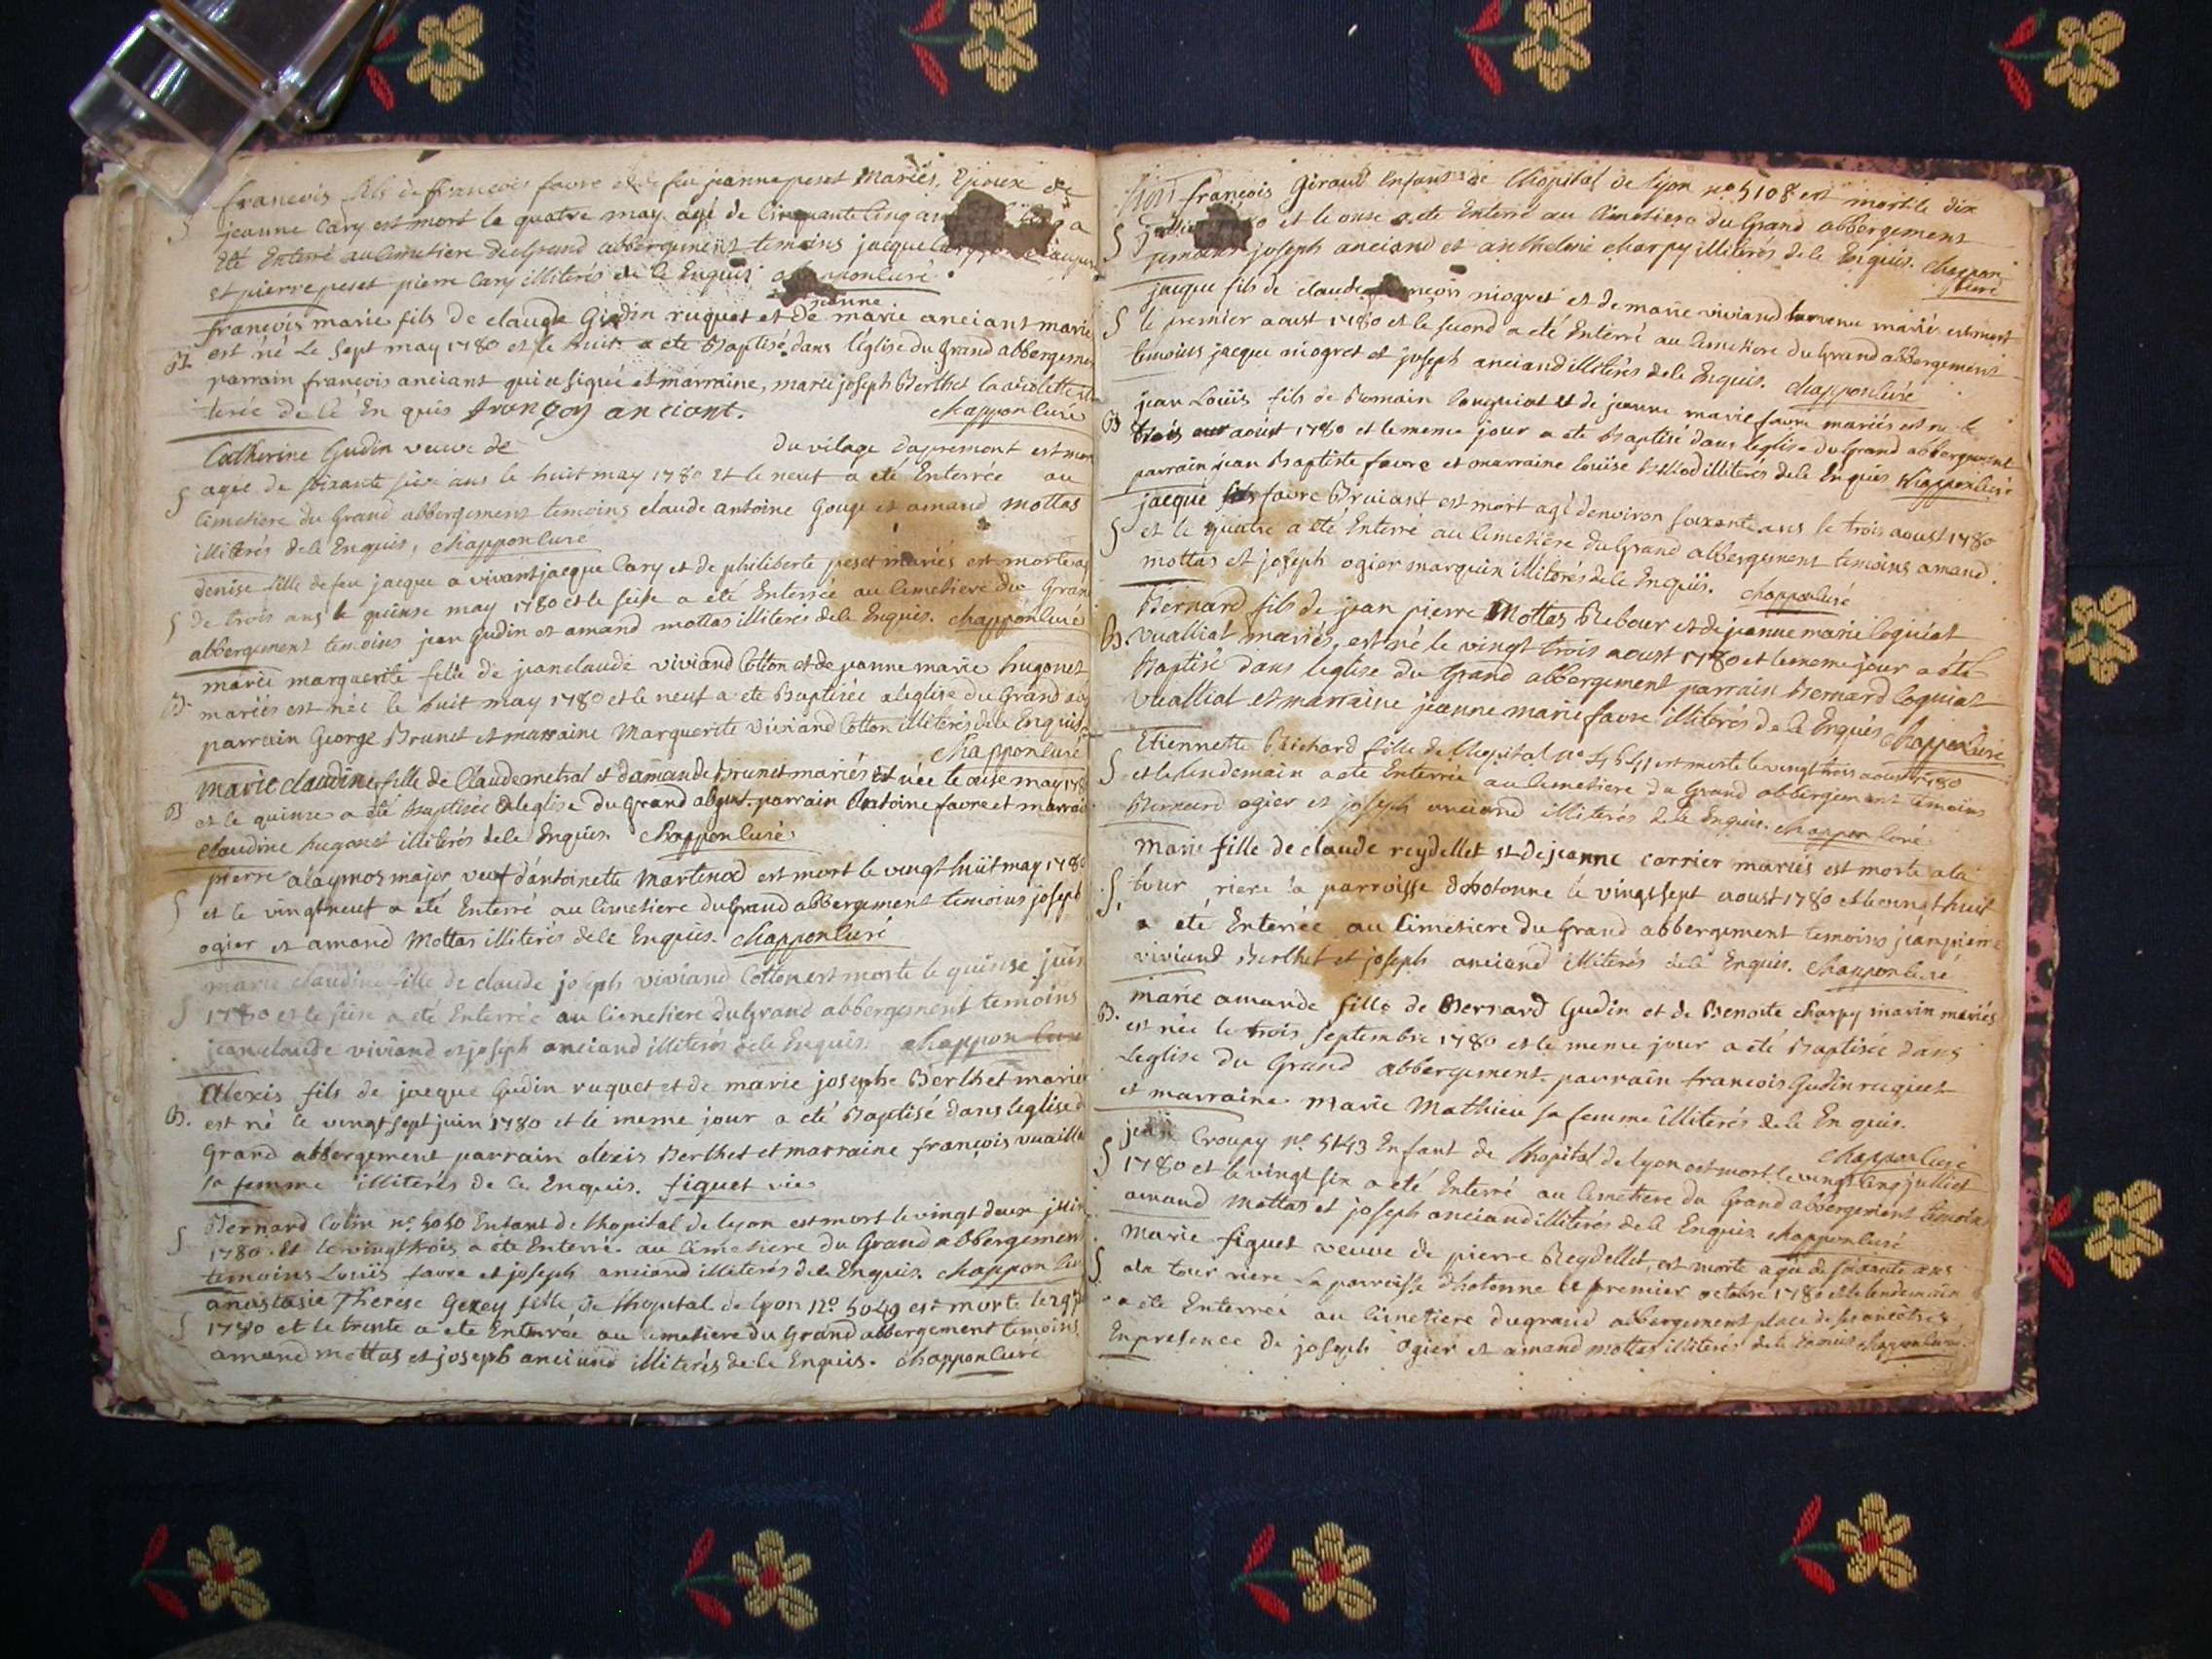 françois fils de françois favre et de feu jeanne peset mariés, Epoux de
jeanne Cary est mort le quatre may agé de Cinquante Cinq ans
Eté Enterré au Cimetiere du Grand abbergement temoins jacque
et pierre peset pierre Cary illiterés de le Enquis chapponcuré
jeanne
françois marie fils de claude Gudin ruquet et de marie anciant mariés
B est né Le sept may 1780 et le huit a eté Baptisé dans l'église du Grand abbergement
parrain françois anciant qui a signé et marraine, marie joseph Berthet
terée de le En quis françois anciant. chappon curé
Catherine Gudin veuve de du vilage dapremont est mort
S agée de soixante six ans le huit may 1780 Et le neuf a été Enterrée au
Cimetiere du Grand abbergement temoins claude antoine Gouge et amand mottas
illiterés de le Enquis, chappon curé
denise fille de feu jacque a vivant jacque Cary et de philiberte peset mariés est morte
S de trois ans le quinse may 1780 et le seise a été Enterrée au Cimetiere du Grand
abbergement temoins jean Gudin et amand mottas illiterés de le Enquis. chappon curé
marie marguerite fille de jean claude viviand Cotton et de jeanne marie hugonet
B. mariés est née le huit may 1780 et le neuf a eté Baptisée a leglise du Grand
parrain George Brunet et marraine Marguerite Viviand Cotton illiterés de le Enquis
chappon curé
marie claudine fille de Claude metral et damande Brunet mariés est née le
B et le quinse a été Baptisée a leglise du Grand abgmt. parrain antoine favre et marraine
claudine hugonet illiterés de le Enquis. chappon curé
pierre alaymos major veuf d'antoinette Martenod est mort le vingt huit may 1780
S et le vingt neuf a été Enterré au Cimetiere du Grand abbergement temoins joseph
ogier et amand Mottas illiterés de le Enquis. chappon curé
marie claudine fille de claude joseph viviand Cotton est morte le quinse juin
S 1780 et le seise a été Enterrée au Cimetiere du Grand abbergement temoins
jean claude viviand et joseph anciand illiterés de le Enquis. chappon curé
Alexis fils de jacque Gudin ruquet et de marie josephe Berthet mariés
B. est né le vingt sept juin 1780 et le meme jour a eté Baptisé dans leglise d
Grand abbergement parrain alexis Berthet et marraine françois vuaill
sa femme illiterés de le Enquis. figuet vic
Bernard Colin n° 5050 Enfant de lhopital de lyon est mort le vingt deux
S 1780. Et le vingt trois a été Enterré au Cimetiere du Grand abbergement
temoins Louis favre et joseph anciand illiterés de le Enquis. chappon
anastasie Therese Gexey fille de lhopital de lyon n° 5049 est morte le 29
S 1780 et le trente a été Enterrée au Cimetiere du Grand abbergement temoins
amand mottas et joseph anciand illiterés de le Enquis. chappon curé
françois Giraud Enfant de lhopital de lyon n° 5108 est mort le dix
S et le onse a eté Enterré au Cimetiere du Grand abbergement
joseph anciand et anthelme charpy illiterés de le Enquis. chappon
curé
jacque fils de claude françois niogret et de marie viviand mariés est mort
S le premier aoust 1780 et le second a eté Enterré au Cimetiere du Grand abbergement
temoins jacque niogret et joseph anciand illiterés de le Enquis. chappon curé
jean Louis fils de Romain et de jeanne marie favre mariés est né le
B trois aoust 1780 et le meme jour a eté Baptisé dans leglise du Grand abbergement
parrain jean Baptiste favre et marraine louise illiterés de le Enquis chappon curé
jacque favre Bruiant est mort agé denviron soixante ans le trois aoust 1780
S et le quatre a eté Enterré au Cimetiere du Grand abbergement temoins amand
mottas et joseph ogier marquin illiterés de le Enquis. chappon curé
Bernard fils de jean pierre Mottas Rebour et de jeanne marie loguiat
B. vualliat mariés, est né le vingt trois aoust 1780 et le meme jour a été
Baptisé dans leglise du Grand abbergement parrain Bernard loguiat
vualliat et marraine jeanne marie favre illiterés de le Enquis chappon curé
Etiennette Richard fille de lhopital n° est morte le vingt trois aoust 1780
S et le lendemain a eté Enterrée au Cimetiere du Grand abbergement temoins
Bernard ogier et joseph anciand illiterés de le Enquis. chappon curé
Marie fille de claude reydellet et de jeanne carrier mariés est morte a la
S tour riere la parroisse dhotonne le vingt sept aoust 1780 et le vingt huit
a été Enterrée au Cimetiere du Grand abbergement temoins jean pierre
viviand Berthet et joseph anciand illiterés de le Enquis. chappon curé
marie amande fille de Bernard Gudin et de Benoite charpy marin mariés
B. est née le trois septembre 1780 et le meme jour a été Baptisée dans
Leglise du Grand abbergement parrain francois Gudin ruquet
et marraine Marie Mathieu sa femme illiterés de le En quis.
chappon curé
jean Croupy n° 5143 Enfant de lhopital de lyon est mort le vingt cinq julliet
S 1780 et le vingt six a eté Enterré au Cimetiere du Grand abbergement temoins
amand Mottas et joseph anciand illiterés de le Enquis chappon curé
Marie figuet veuve de pierre Reydellet, est morte agée de soixante ans
S a la tour riere La parroisse dhotonne le premier octobre 1780 et le lendemain
a eté Enterrée au Cimetiere du grand abbergement place de ses ancêtres
En presence de joseph Ogier et amand mottas illiterés de le Enquis chappon curé